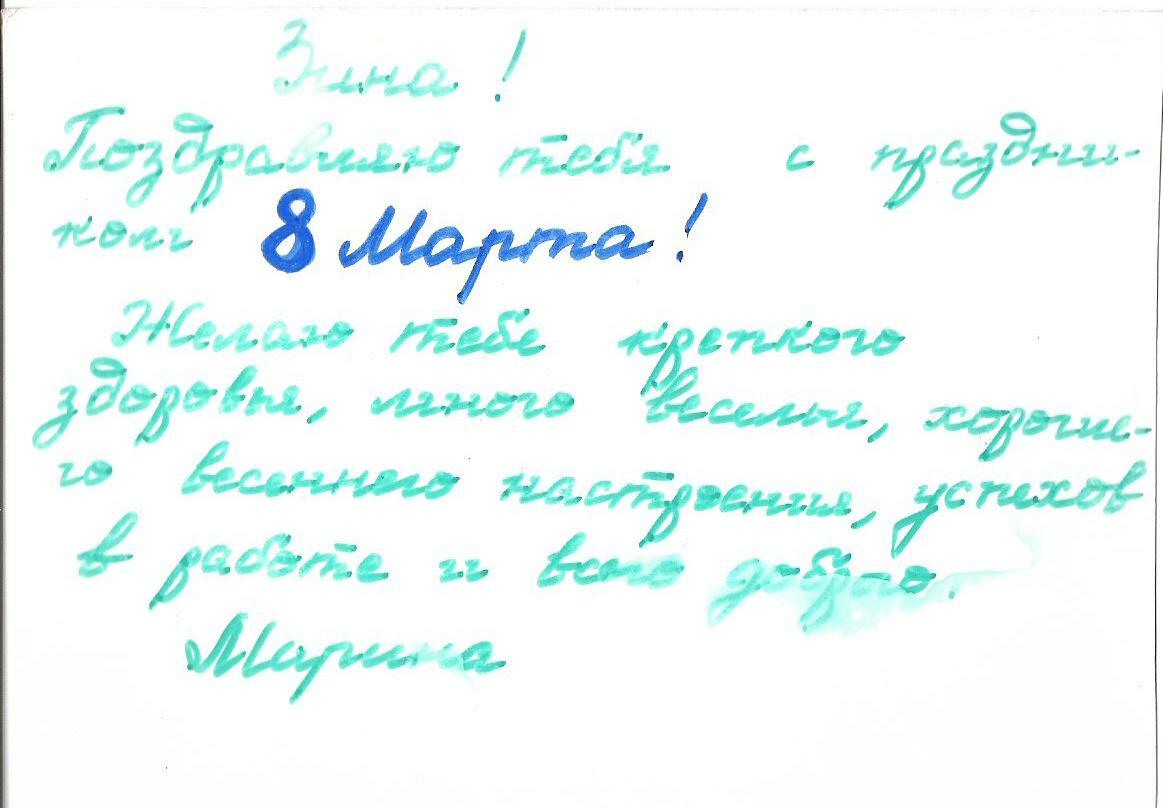 Зина!
Поздравляю тебя с праздни-
ком 8 Марта!
Желаю тебе крепкого
здоровья, много веселья, хороше-
го весеннего настроения, успехов
в работе и всего доброго.
Марина